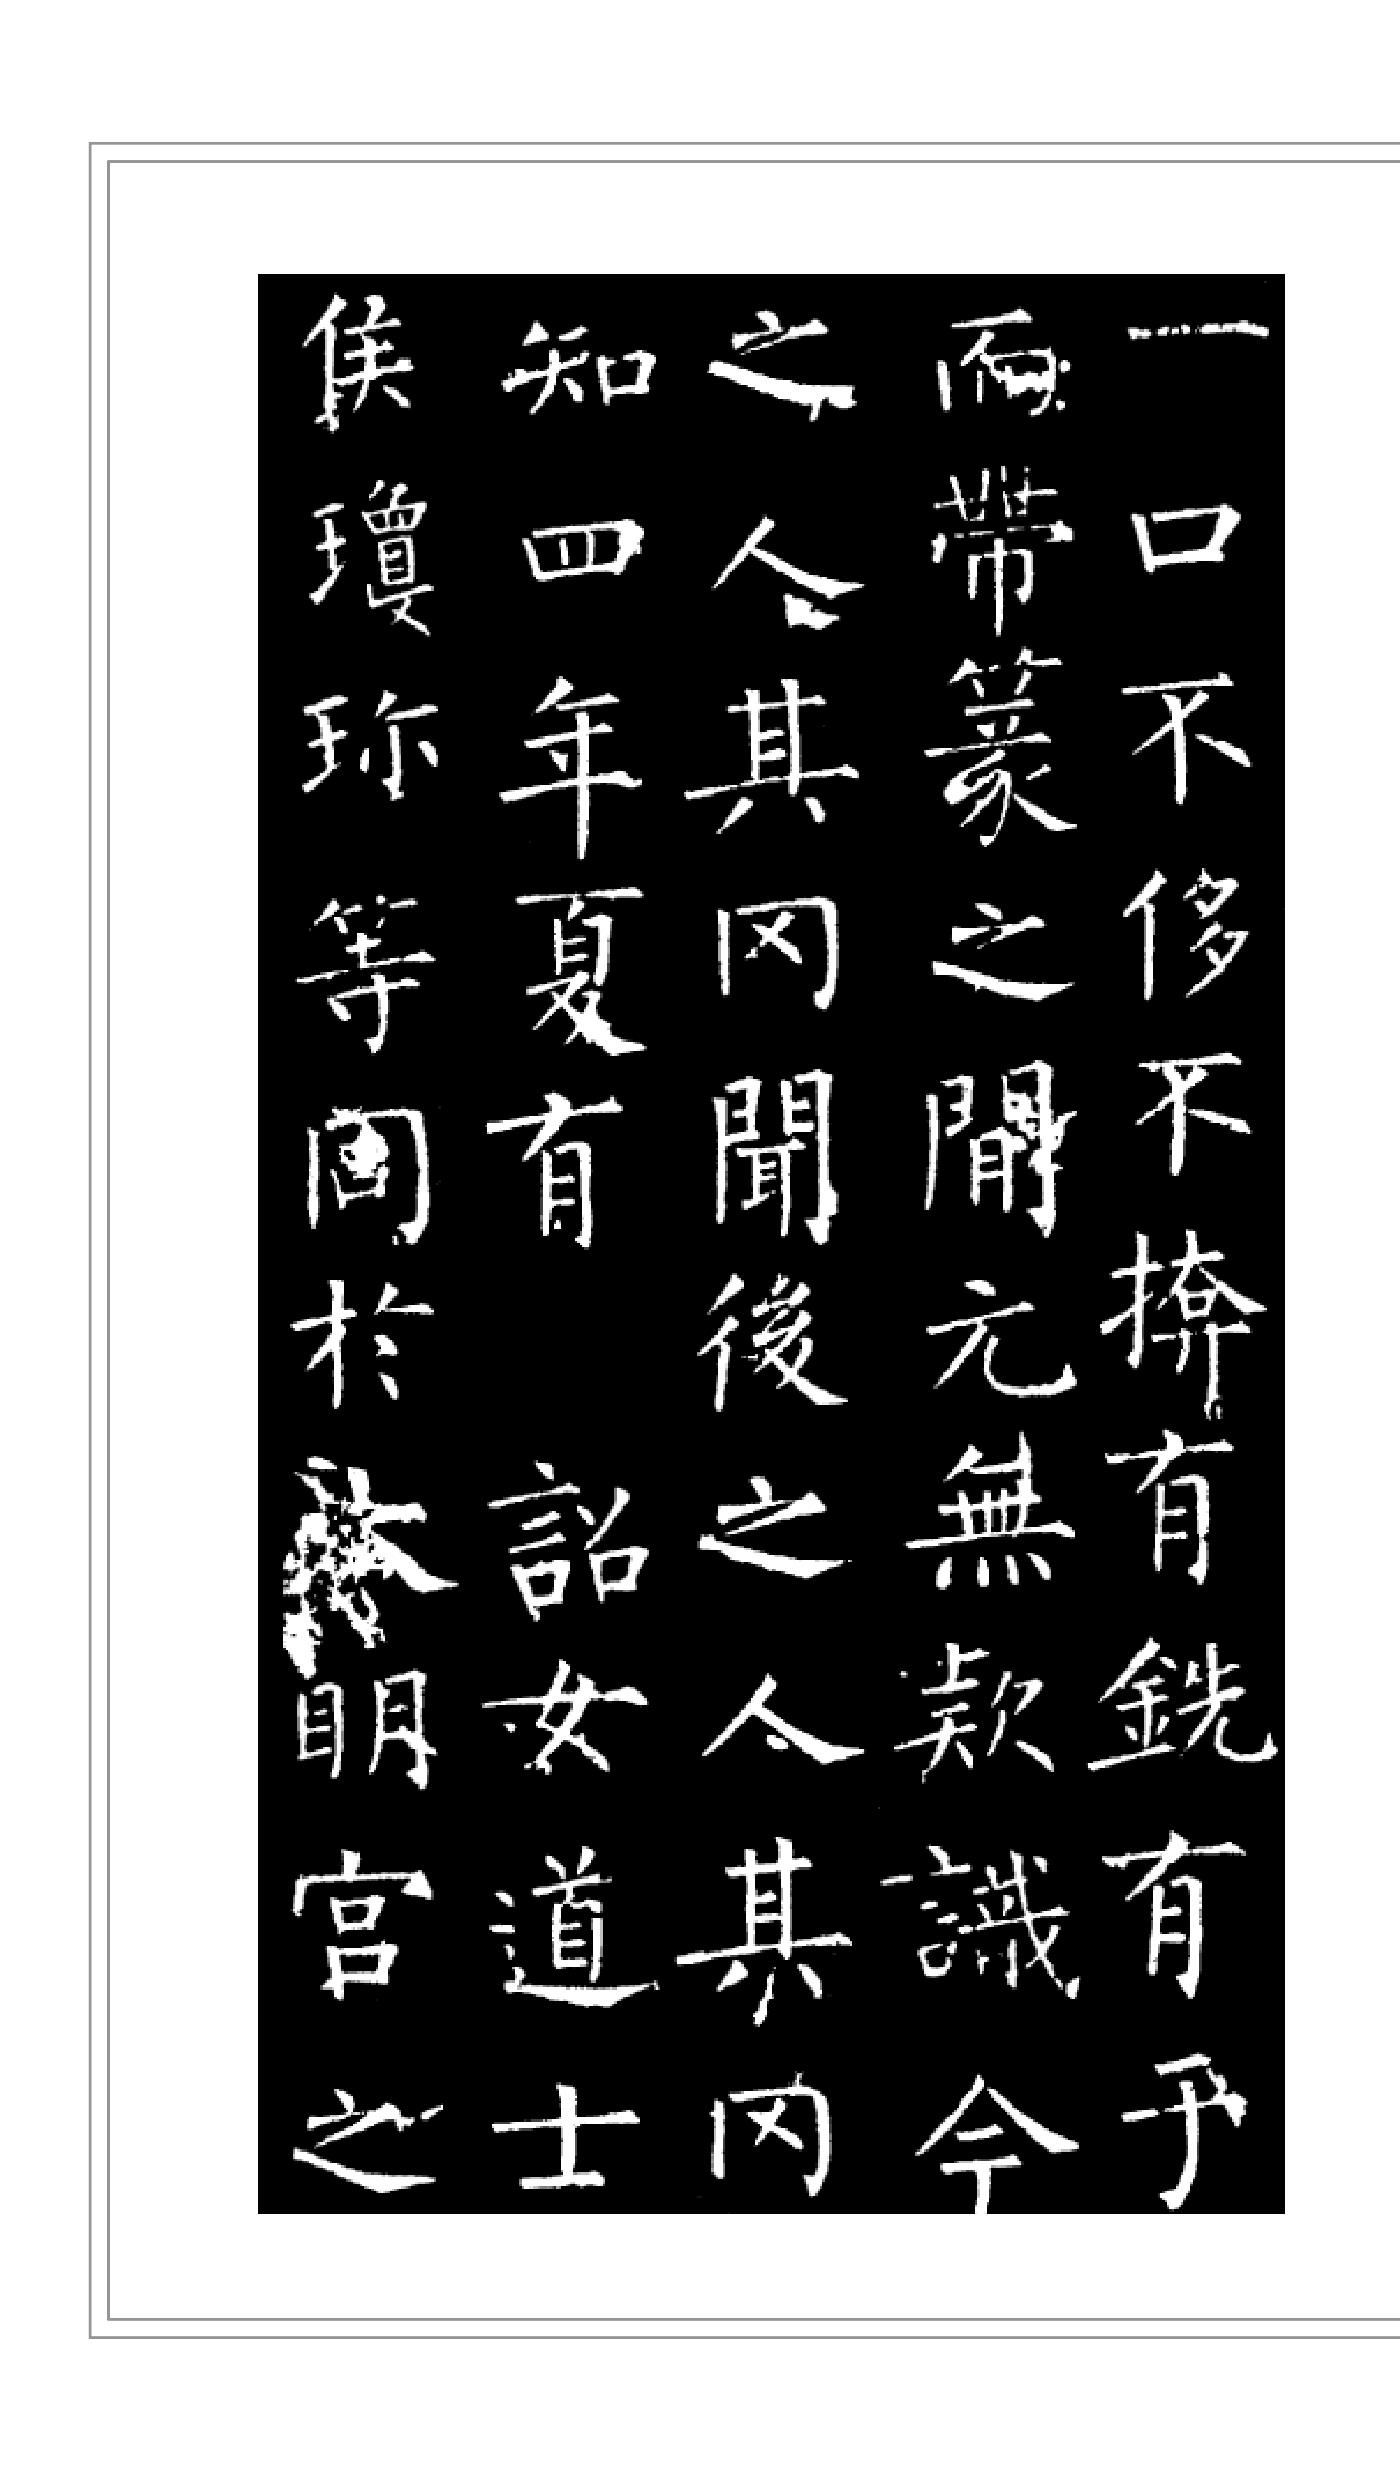 一口不侈不揜有銑有于
而帶篆之間元無款識今
之人其罔聞後之人其罔
知四年夏有 詔女道士
侯瓊珎等同於大明宮之